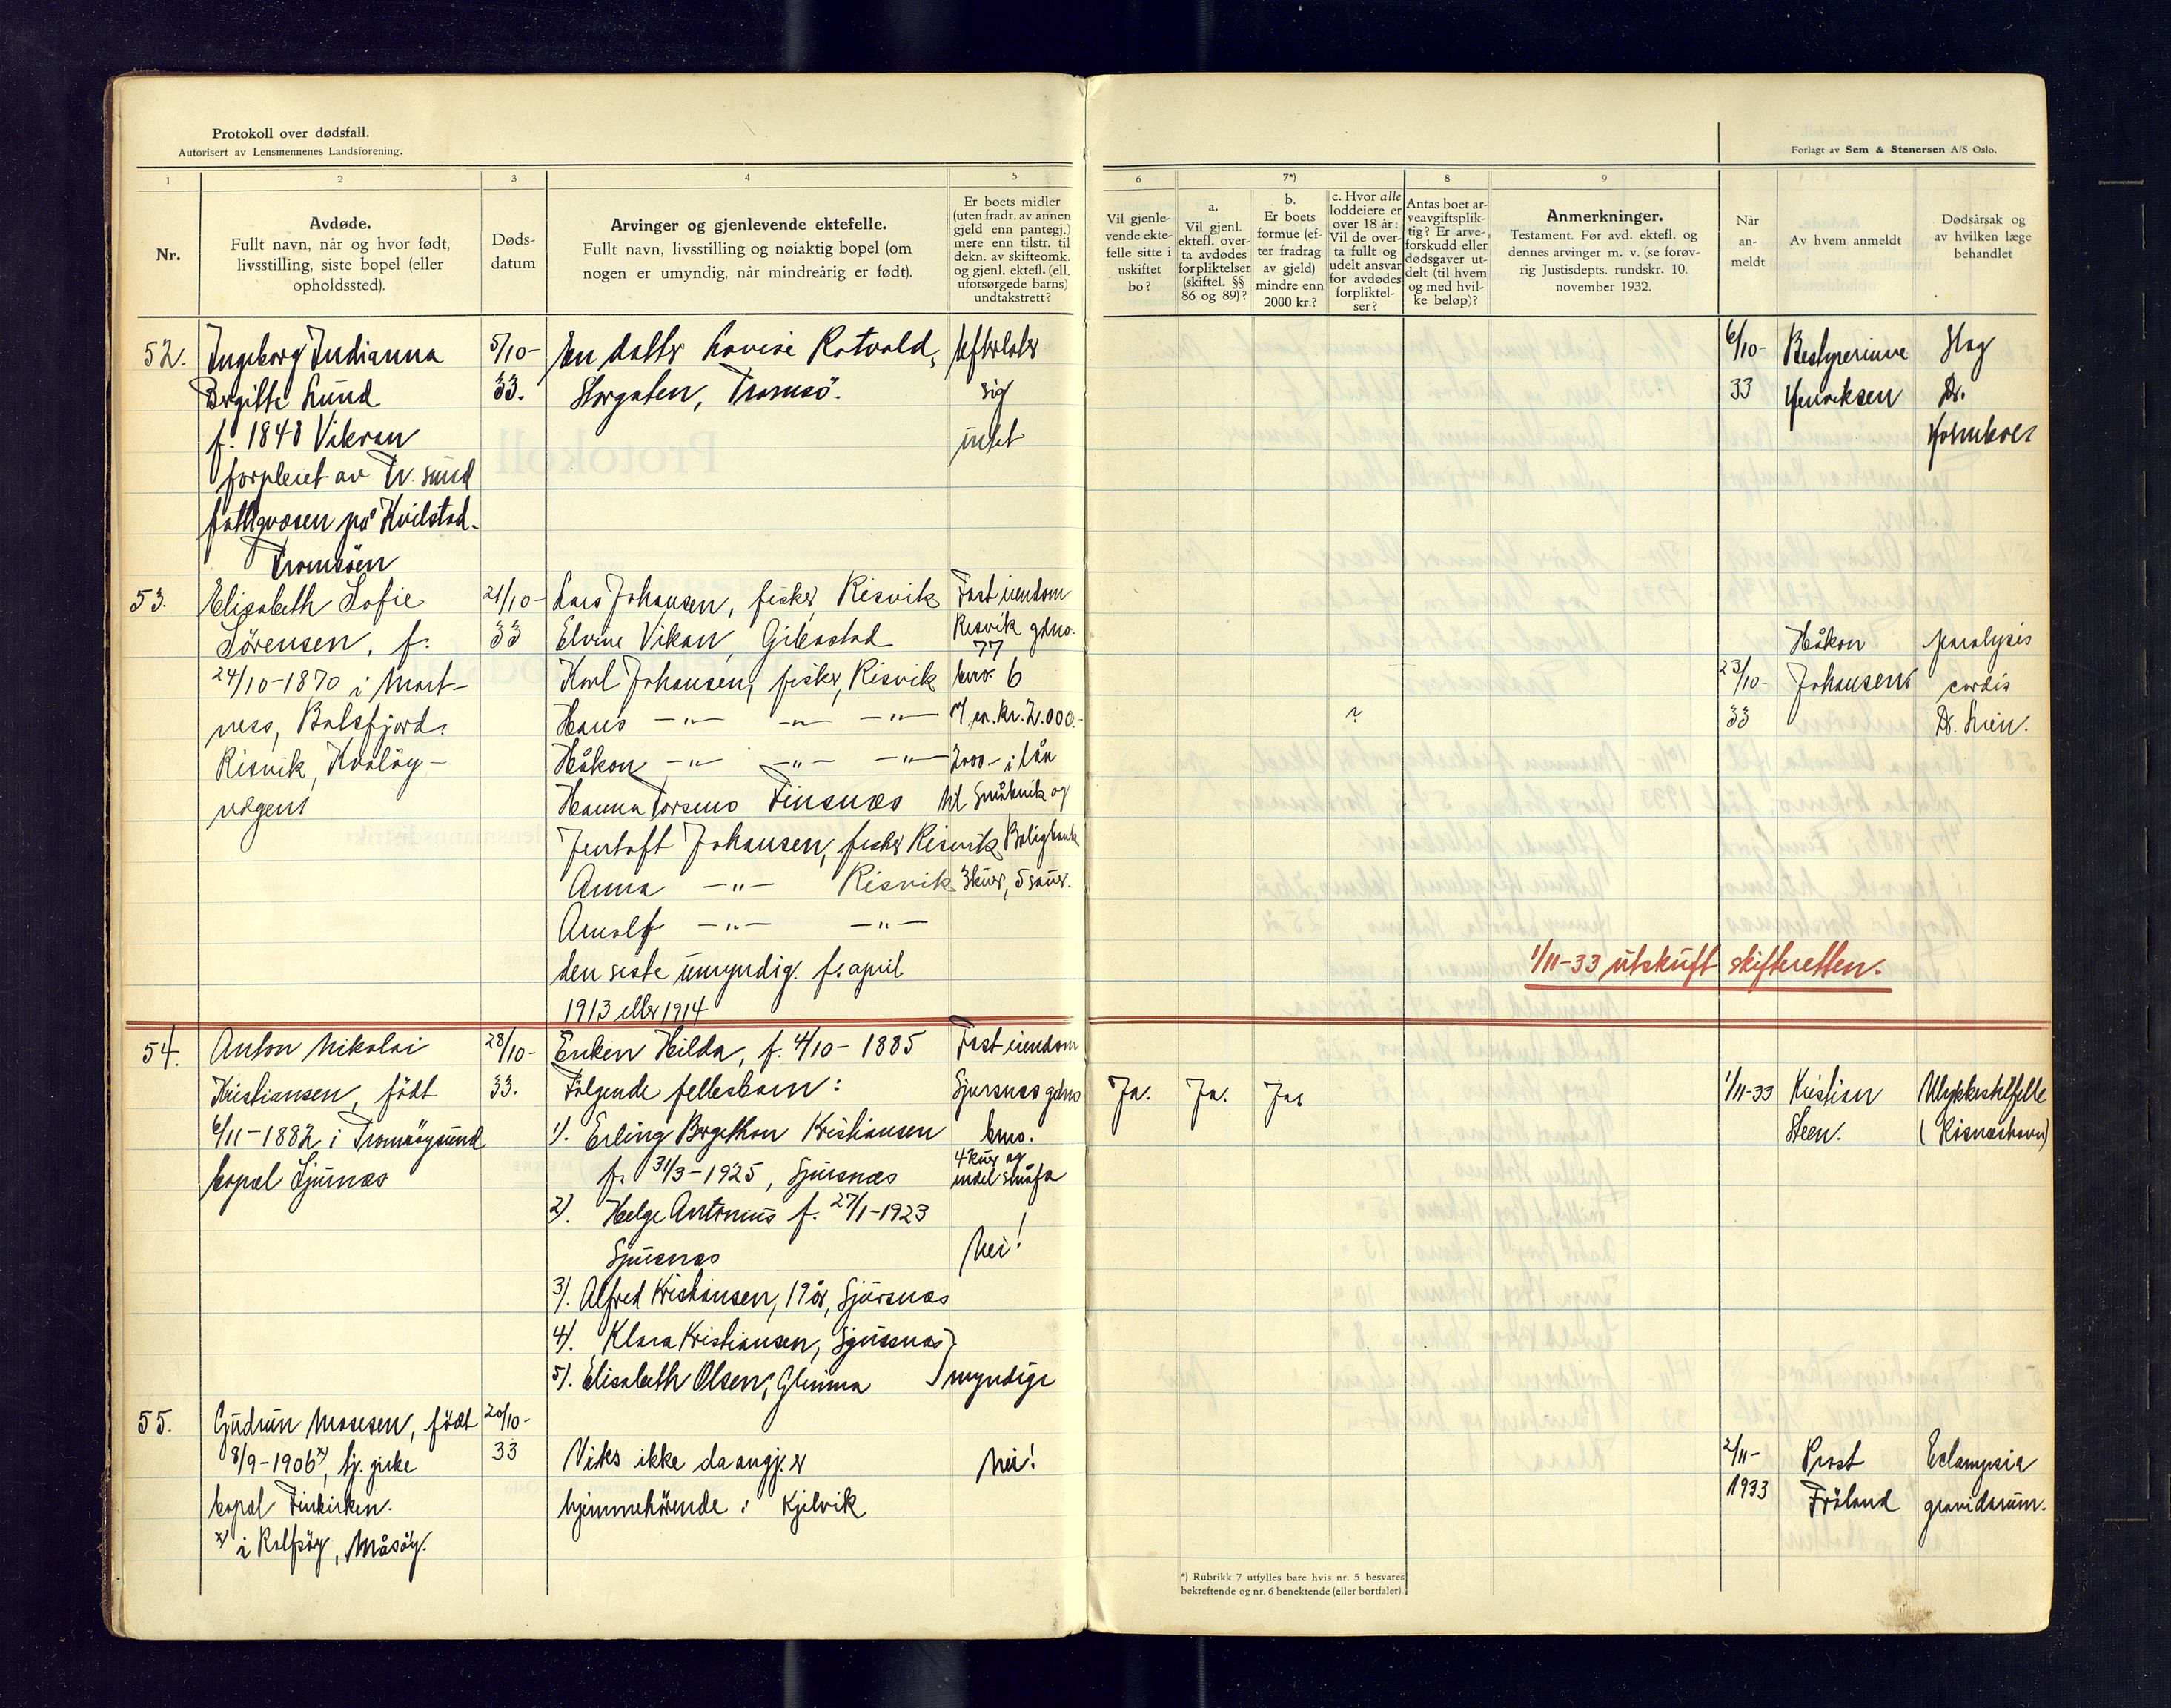 Protokoll over dødsfall.
Autorisert av Lensmennenes Landsforening.
Forlagt av Sem & Stenersen A/S Oslo.
1
2
3
4
5
6
7*)
8
9
Nr.
Avdøde.
Fullt navn, når og hvor født,
livsstilling, siste bopel (eller
opholdssted).
Døds-
datum
Arvinger og gjenlevende ektefelle.
Fullt navn, livsstilling og nøiaktig bopel (om
nogen er umyndig, når mindreårig er født).
Er boets midler
(uten fradr. av annen
gjeld enn pantegj.)
mere enn tilstr. til
dekn. av skifteomk.
og gjenl. ektefl. (ell.
uforsørgede barns)
undtakstrett?
Vil gjenle-
vende ekte-
felle sitte i
uskiftet
bo?
a.
Vil gjenl.
ektefl. over-
ta avdødes
forpliktelser
(skiftel. §§
86 og 89)?
b.
Er boets
formue (ef-
ter fradrag
av gjeld)
mindre enn
2000 kr.?
c. Hvor alle
loddeiere er
over 18 år:
Vil de over-
ta fullt og
udelt ansvar
for avdødes
forpliktel-
ser?
Antas boet ar-
veavgiftsplik-
tig? Er arve-
forskudd eller
dødsgaver ut-
delt (til hvem
og med hvil-
ke beløp)?
Anmerkninger.
Testament. Før avd. ektefl. og
dennes arvinger m. v. (se forøv-
rig Justisdepts. rundskr. 10.
november 1932.
Når
an-
meldt
Av hvem anmeldt
Dødsårsak og
av hvilken læge
behandlet
52.
Ingeborg Indianna
Birgitte Lund
f. 1848 Vikran
forpleiet av Tr. sund
fattigvæsen på Kvilstad-
Tromsøen
5/10-
33.
En datter Lovise Rotvold,
Storgaten, Tromsö.
Efterlater
sig
intet
6/10-
33
Bestyrerinne
Henriksen
Slag
Dr.
Holmboe
53.
Elisabeth Sofie
Sørensen, f.
24/10-1870 i Mort-
ness, Balsfjord.
Risvik, Kvaløy-
vågen
21/10-
33
Lars Johansen, fisker, Risvik
Elvine Vikan, Gibostad
Karl Johansen, fisker, Risvik
Hans -"- -"- -"-
Håkon -"- -"- -"-
Hanna Torsens Finsnæs
Jentoft Johansen, fisker Risvik
Anna -"- Risvik
Arnolf -"- -"-
den siste umyndig. f. april
1913 eller 1914
Fast eiendom
Risvik gdno.
77
bno. 6
Kr. 2.000.-
2000- i lån
til Småbruk og
Boligbank
3 kuer, 5 sauer.
?
23/10-
33
Håkon
Johansen
paralysis
cordis
Dr. Lien.
1/11-33 utskrift skifteretten.
54.
Anton Nikolai
Kristiansen, født
6/11-1882 i Tromsøysund
bopæl Sjursnæs
28/10-
33.
Enken Hilda, f. 4/10-1885
Følgende fellesbarn:
1). Erling Bergethon Kristiansen
f. 31/3-1925, Sjursnæs
2). Helge Antonius f. 27/1-1923
Sjursnæs
3). Alfred Kristiansen, 19 år, Sjursnæs
4). Klara Kristiansen, Sjursnæs
5). Elisabeth Olsen, Glimma
myndige
Fast eiendom
Sjursnæs gdno
bno.
4 kuer og
endel småfe
Nei!
Ja.
Ja.
Ja.
1/11-33
Kristian
Steen.
Ulykkestilfelle
(Risneshavn)
55.
Gudrun Mosesen, født
8/9-1906 x), Sj. pike
bopæl Finkirken.
x) i Rolfsøy, Måsøy.
20/10-
33
Vites ikke da angj. er
hjemmehörende i Kjelvik
Nei!
2/11-
1933
Prost
Fröland
Eclampsia
gravidarum.
*) Rubrikk 7 utfylles bare hvis nr. 5 besvares
bekreftende og nr. 6 benektende (eller bortfaler)